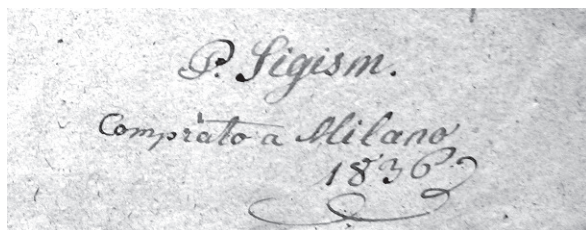 P. Sigism.
Comprato a Milano
1836.